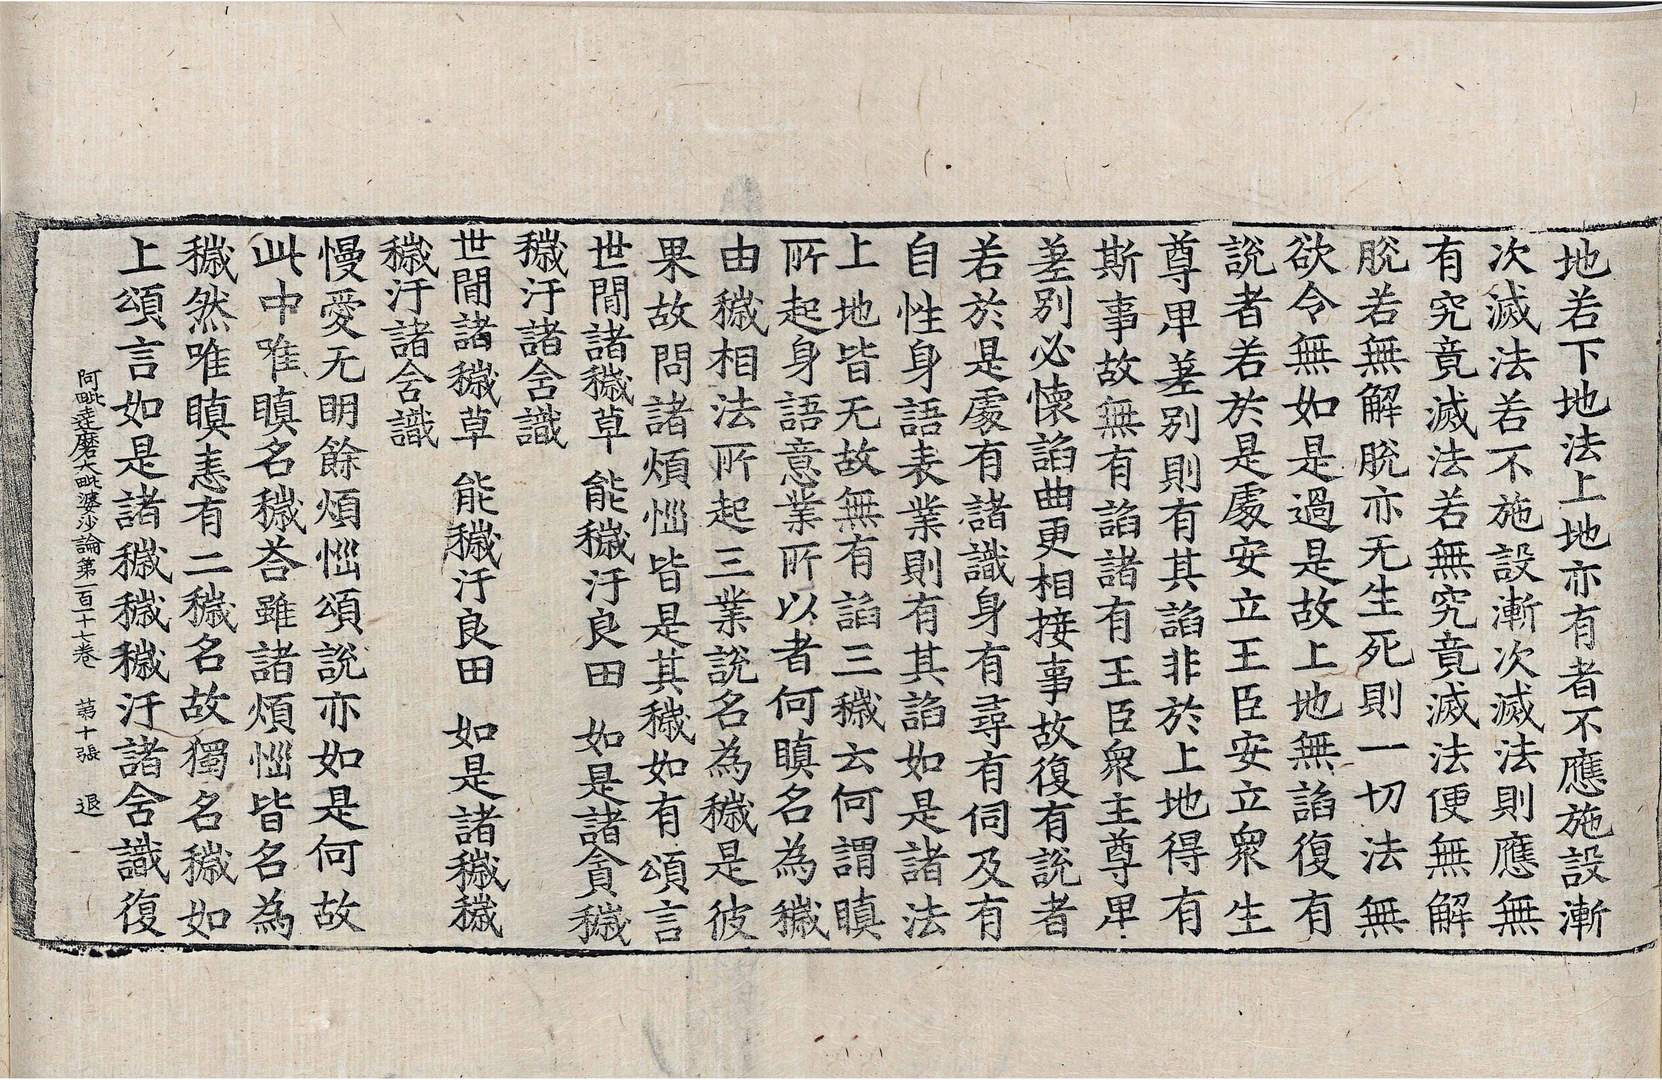 地若下地法上地亦有者不應施設漸
次滅法若不施設漸次滅法則應無
有究竟滅法若無究竟滅法便無解
脫若無解脫亦无生死則一切法無
欲令無如是過是故上地無諂復有
說者若於是處安立王臣安立衆生
尊卑差別則有其諂非於上地得有
斯事故無有諂諸有王臣衆主尊卑
差別必懷諂曲更相接事故復有說者
若於是處有諸識身有尋有伺及有
自性身語表業則有其諂如是諸法
上地皆无故無有諂三穢云何謂瞋
所起身語意業所以者何瞋名為穢
由穢相法所起三業說名為穢是彼
果故問諸煩惱皆是其穢如有頌言
世間諸穢草　能穢汙良田　如是諸貪穢
穢汙諸含識
世間諸穢草　能穢汙良田　如是諸穢穢
穢汙諸含識
慢愛无明餘煩惱頌說亦如是何故
此中唯瞋名穢荅雖諸煩惱皆名為
穢然唯瞋恚有二穢名故獨名穢如
上頌言如是諸穢穢穢汙諸含識復
阿毗達磨大毗婆沙論第一百一十七卷　第十張　退